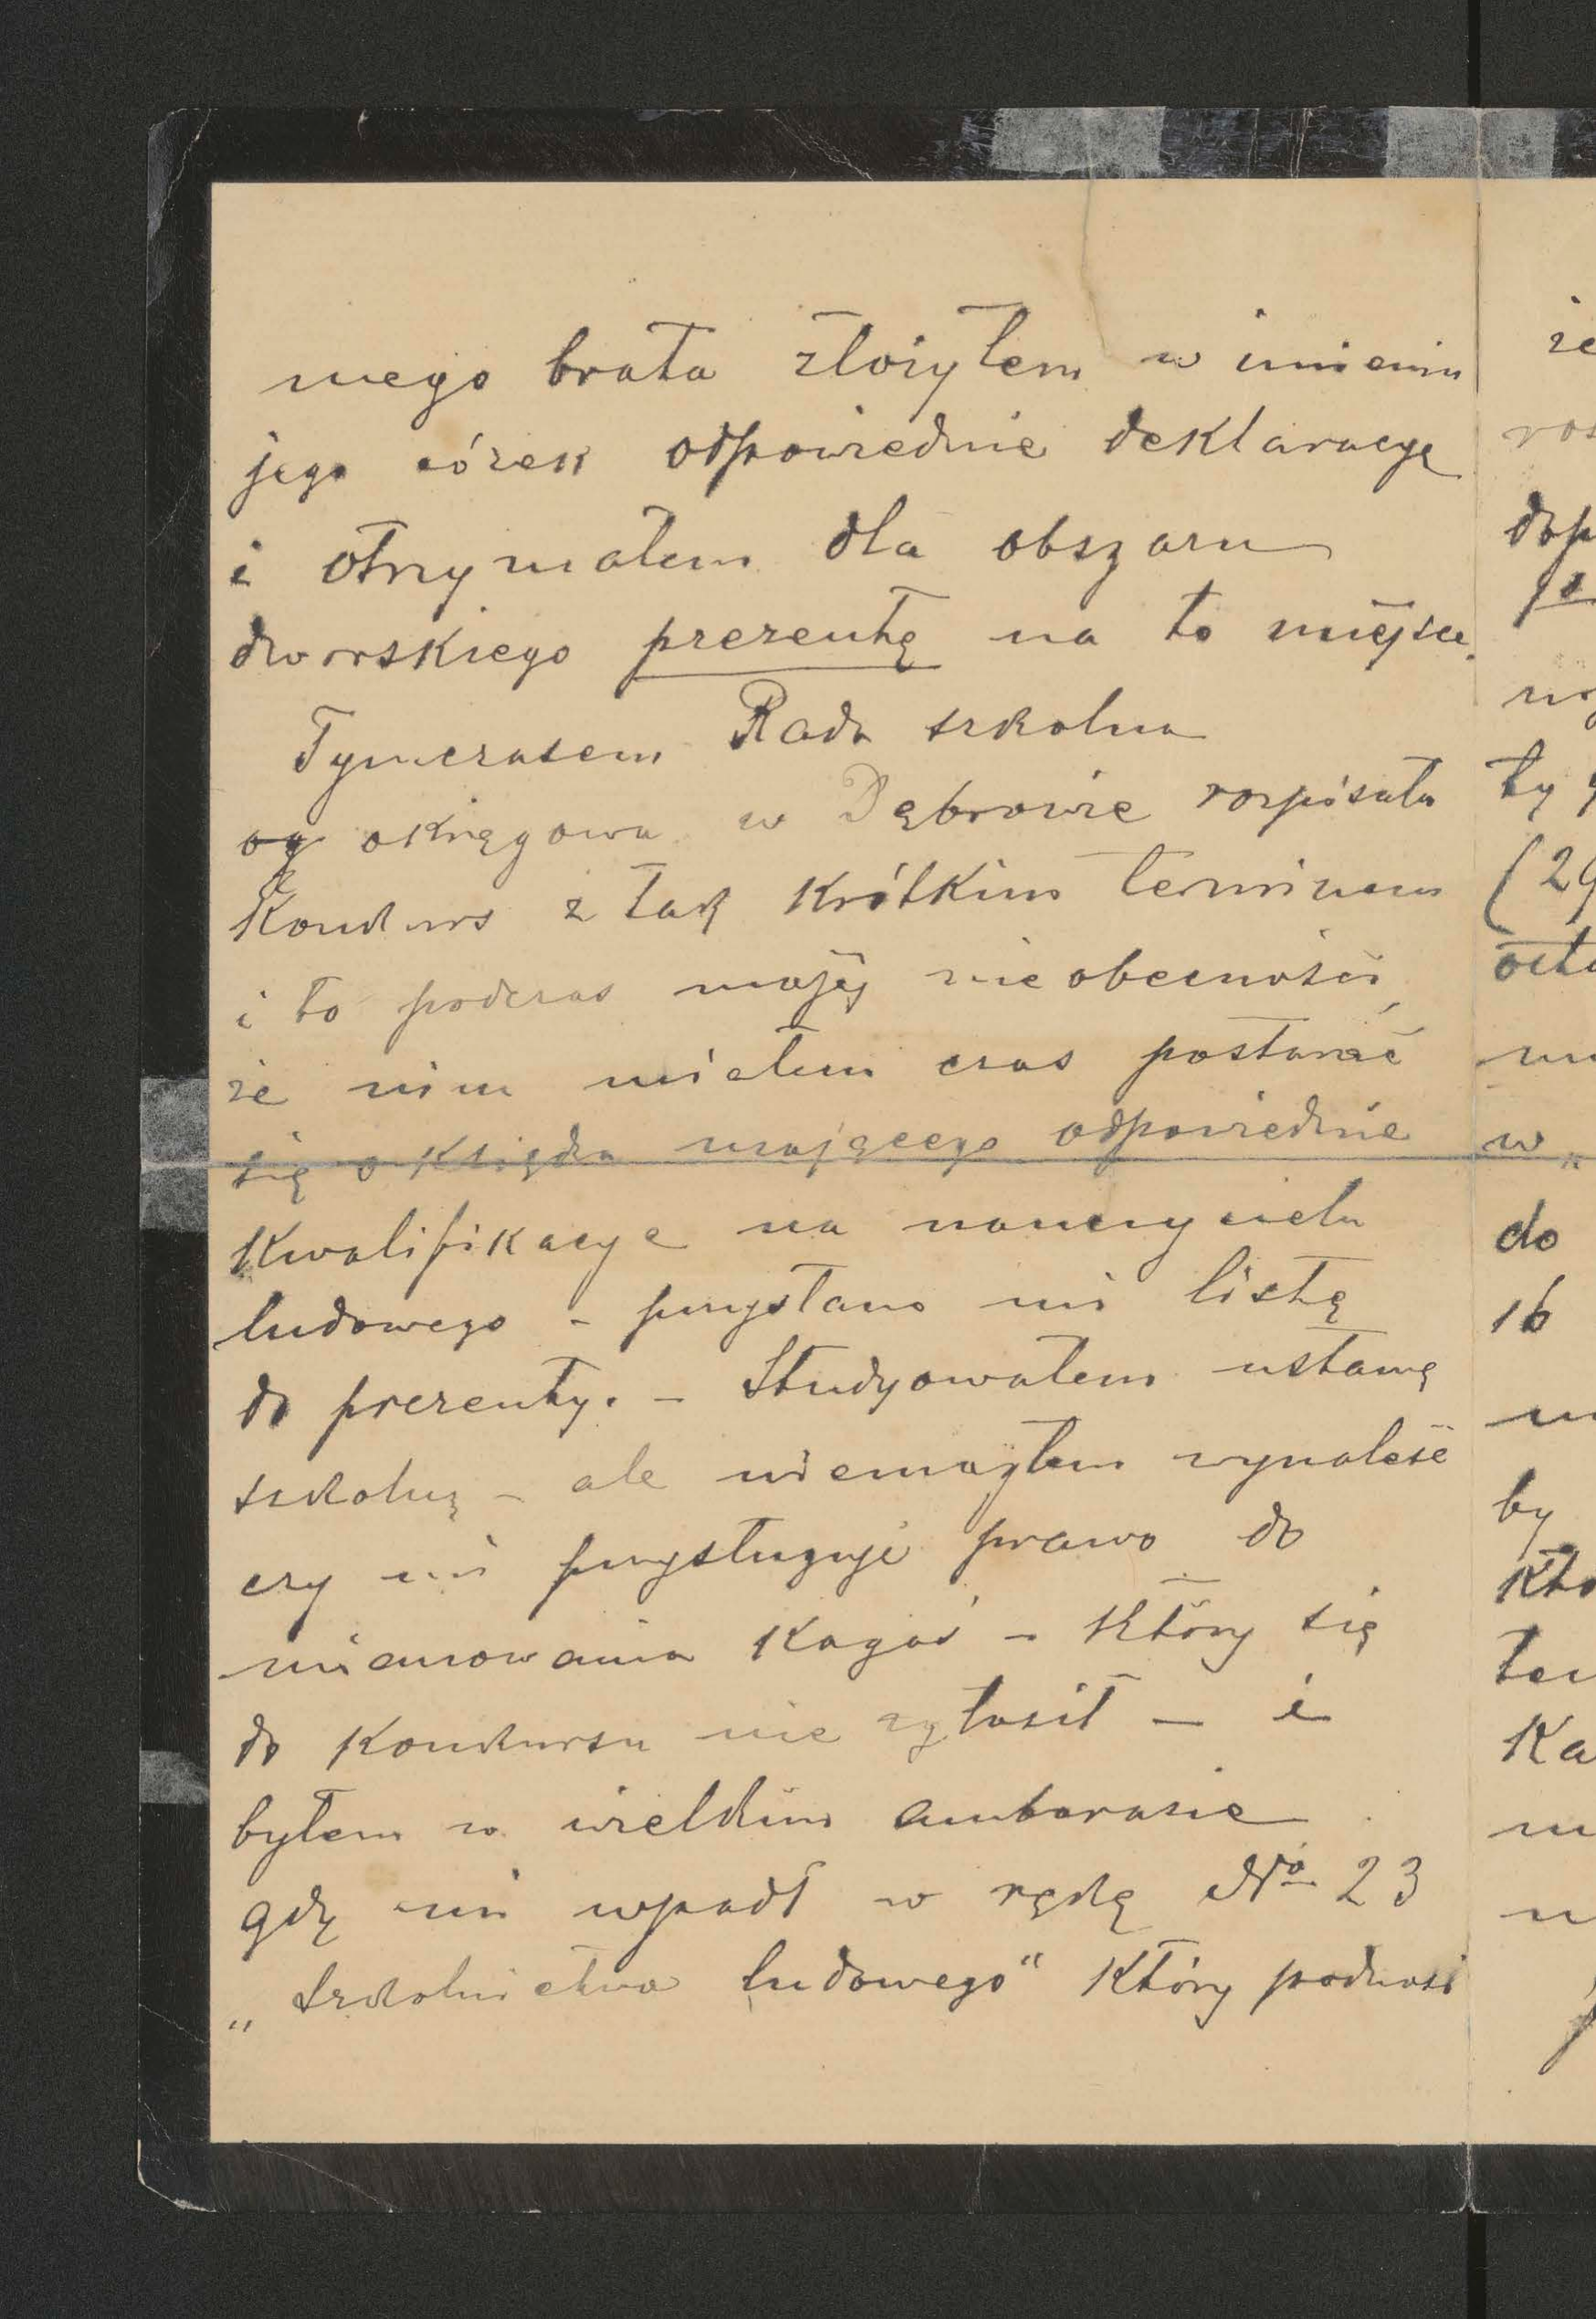 mego brata złożyłem w imieniu
jego córek odpowiednie deklaracye
i otrzymałem dla obszaru
dworskiego prezentę na to miejsce.
Tymczasem Rada szkolna
og okręgowa w Dąbrowie rozpisała
Konkurs z tak krótkim terminem
i to podczas mojej nieobecności,
że nim miałem czas postarać
się o Księdza mającego odpowiednie
Kwalifikacye na nauczyciela
ludowego - przysłano mi listę
do prezenty. - Studyowałem ustawę
szkolną - ale niemogłem wynaleść
czy mi przysługuje prawo do
mianowania Kogoś - który się
do Konkursu nie zgłosił - i
byłem w wielkim ambarasie
gdy mi wpadł w rękę No 23
„Szkolnictwa ludowego" Który podnosi
że
ros
dop
ty
(29
do
16
by
Kto
Ka